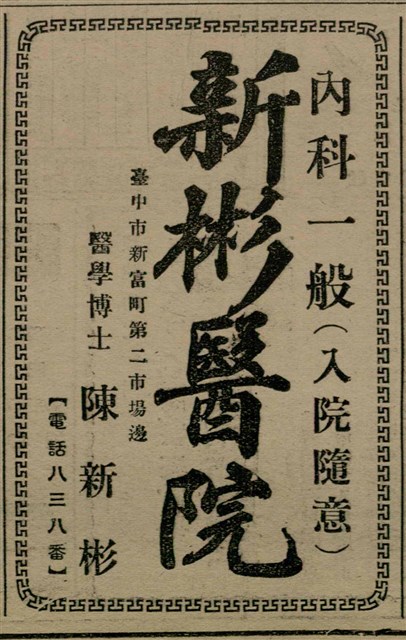 內科一般（入院隨意）
新彬醫院
臺中市新富町第二市場邊
醫學博士 陳新彬
【電話八三八番】